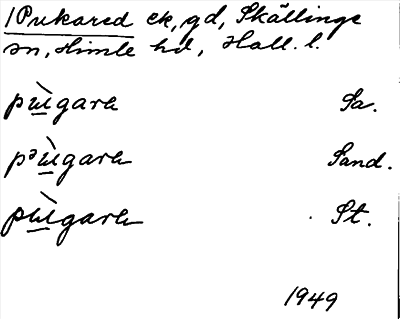 1 Pukared ek, gd, Skällinge
sn, Himle hd, Hall. l.
pɯ̀garа Sa.
pᵊɯ̀gara Sand.
pɯ̀gara St.
1949